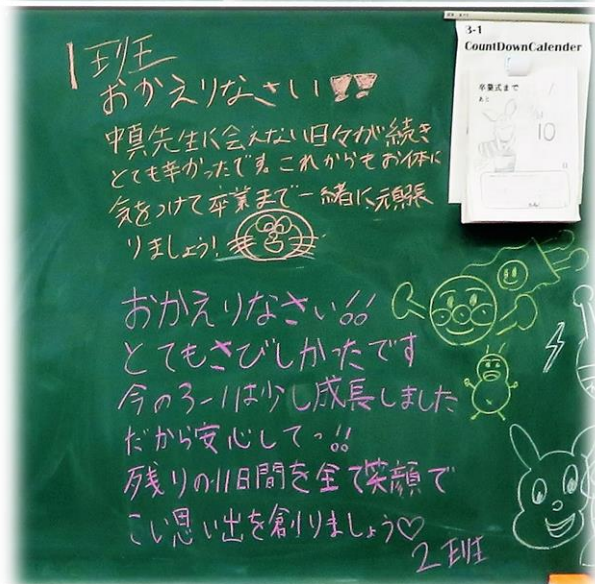 1班
おかえりなさい!!
中真先生に会えない日々が続き
とても辛かったです。これからもお体に
気をつけて卒業まで一緒に頑張
りましょう!
おかえりなさい!!
とてもさびしかったです
今の3-1は少し成長しました
だから安心してっ!!
残りの11日間を全て笑顔で
こい思い出を創りましょう♡
2班
3-1
CountDownCalender
卒業式まで
あと
10
日